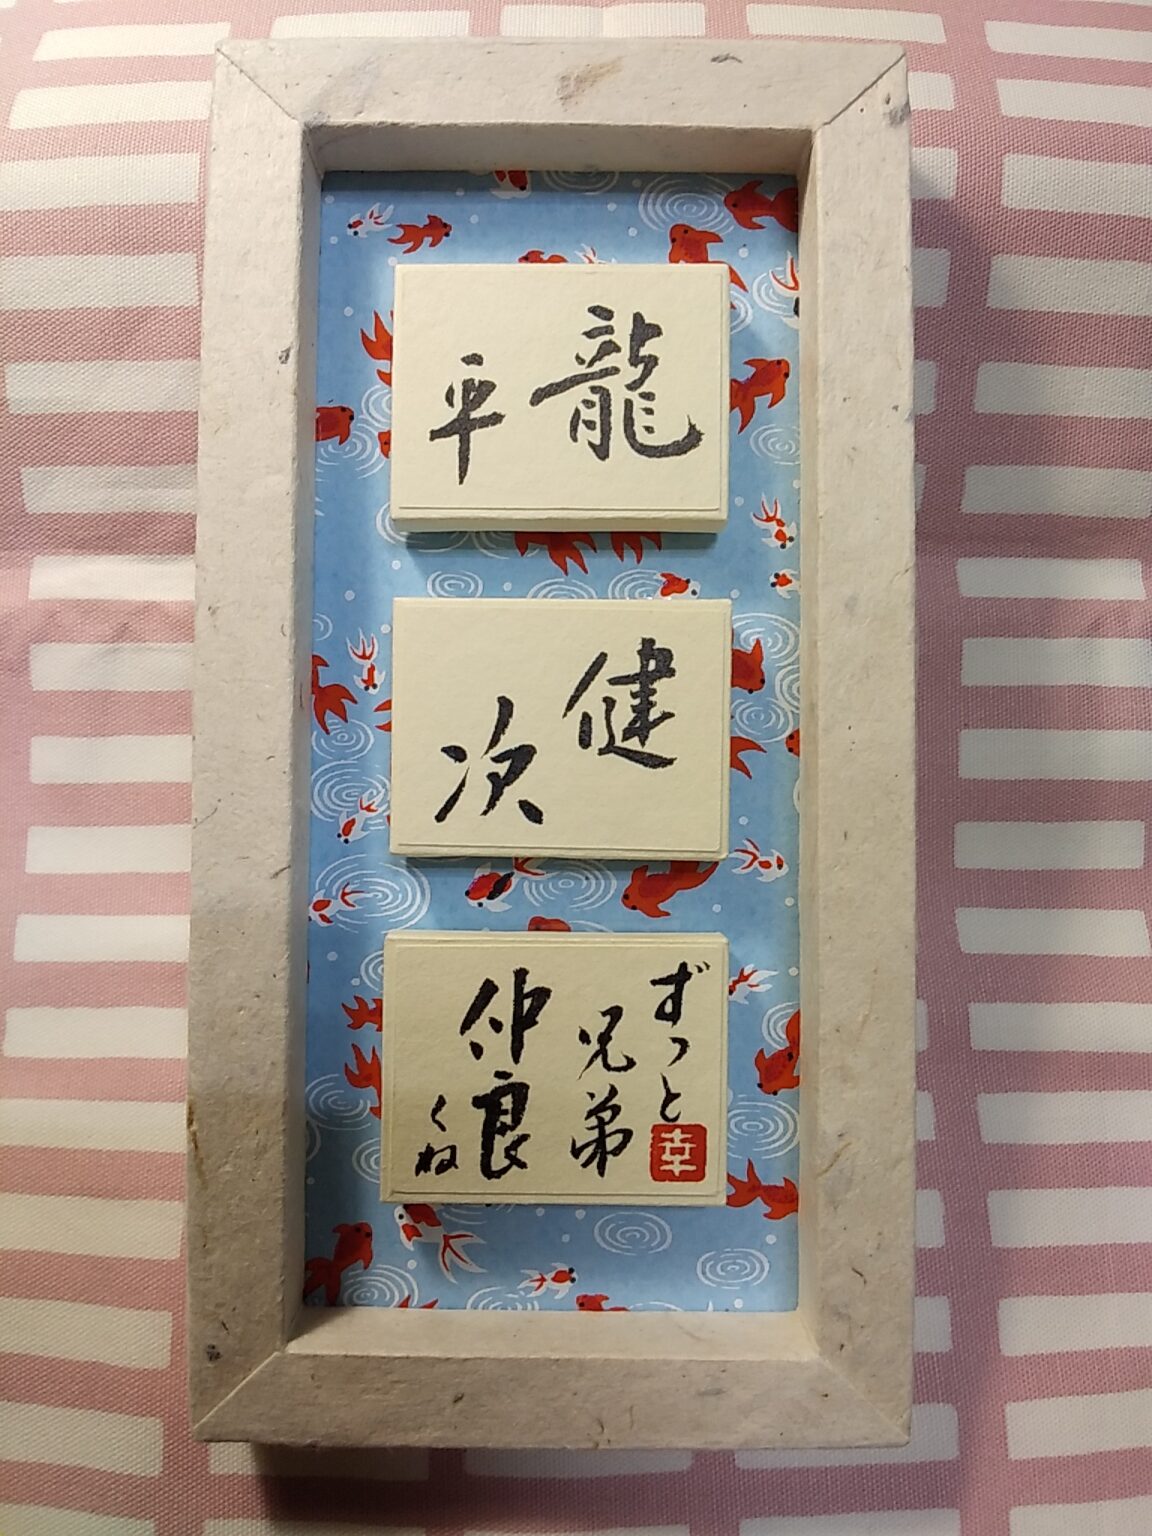 龍
平
健
次
ずっと
幸
兄弟
仲良
くね